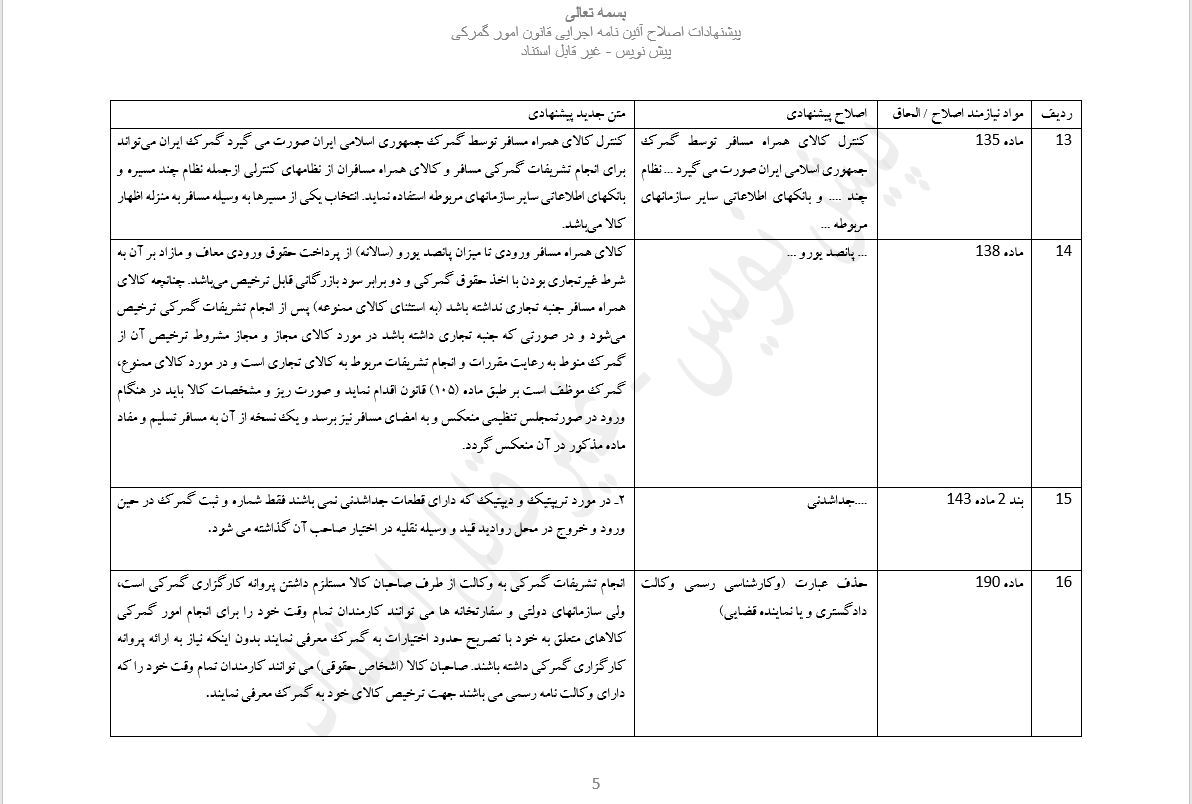 بسمه تعالی
پیشنهادات اصلاح آئین نامه اجرایی قانون امور گمرکی
پیش نویس - غیر قابل استناد
ردیف
مواد نیازمند اصلاح / الحاق
اصلاح پیشنهادی
متن جدید پیشنهادی
13
ماده 135
کنترل کالای همراه مسافر توسط گمرک
جمهوری اسلامی ایران صورت می گیرد ... نظام
چند .... و بانکهای اطلاعاتی سایر سازمانهای
مربوطه ...
کنترل کالای همراه مسافر توسط گمرک جمهوری اسلامی ایران صورت می گیرد گمرک ایران می‌تواند
برای انجام تشریفات گمرکی مسافر و کالای همراه مسافران از نظامهای کنترلی ازجمله نظام چند مسیره و
بانکهای اطلاعاتی سایر سازمانهای مربوطه استفاده نماید. انتخاب یکی از مسیرها به وسیله مسافر به منزله اظهار
کالا می‌باشد.
14
ماده 138
... پانصد یورو ...
کالای همراه مسافر ورودی تا میزان پانصد یورو (سالانه) از پرداخت حقوق ورودی معاف و مازاد بر آن به
شرط غیرتجاری بودن با اخذ حقوق گمرکی و دو برابر سود بازرگانی قابل ترخیص می‌باشد. چنانچه کالای
همراه مسافر جنبه تجاری نداشته باشد (به استثنای کالای ممنوعه) پس از انجام تشریفات گمرکی ترخیص
می‌شود و در صورتی که جنبه تجاری داشته باشد در مورد کالای مجاز و مجاز مشروط ترخیص آن از
گمرک منوط به رعایت مقررات و انجام تشریفات مربوط به کالای تجاری است و در مورد کالای ممنوع،
گمرک موظف است بر طبق ماده (۱۰۵) قانون اقدام نماید و صورت ریز و مشخصات کالا باید در هنگام
ورود در صورتمجلس تنظیمی منعکس و به امضای مسافر نیز برسد و یک نسخه از آن به مسافر تسلیم و مفاد
ماده مذکور در آن منعکس گردد.
15
بند 2 ماده 143
....جداشدنی
۲ـ در مورد تریپتیک و دیپتیک که دارای قطعات جداشدنی نمی باشند فقط شماره و ثبت گمرک در حین
ورود و خروج در محل روادید قید و وسیله نقلیه در اختیار صاحب آن گذاشته می شود.
16
ماده 190
حذف عبارت (وکارشناسی رسمی وکالت
دادگستری و یا نماینده قضایی)
انجام تشریفات گمرکی به وکالت از طرف صاحبان کالا مستلزم داشتن پروانه کارگزاری گمرکی است،
ولی سازمانهای دولتی و سفارتخانه ها می توانند کارمندان تمام وقت خود را برای انجام امور گمرکی
کالاهای متعلق به خود با تصریح حدود اختیارات به گمرک معرفی نمایند بدون اینکه نیاز به ارائه پروانه
کارگزاری گمرکی داشته باشند. صاحبان کالا (اشخاص حقوقی) می توانند کارمندان تمام وقت خود را که
دارای وکالت نامه رسمی می باشند جهت ترخیص کالای خود به گمرک معرفی نمایند.
پیش نویس - غیر قابل استناد
5